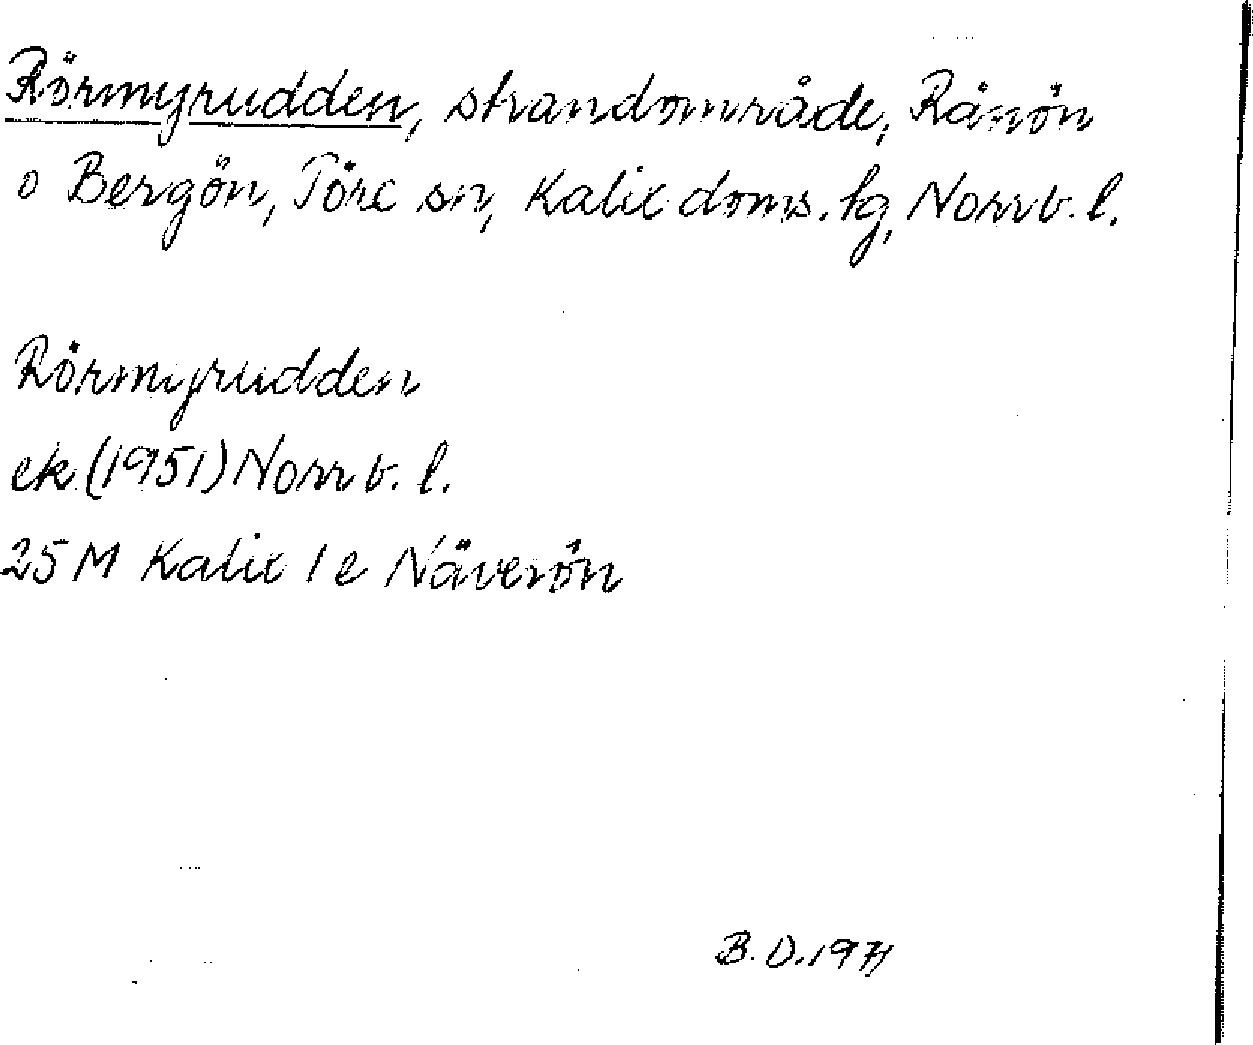 Rörmyrudden, strandområde, Rånön
o Bergön, Töre sn, Kalix doms. lg, Norrb. l.
Rörmyrudden
ek (1951) Norrb. l.
25 M Kalix 1 e Näverön
B. D. 1971